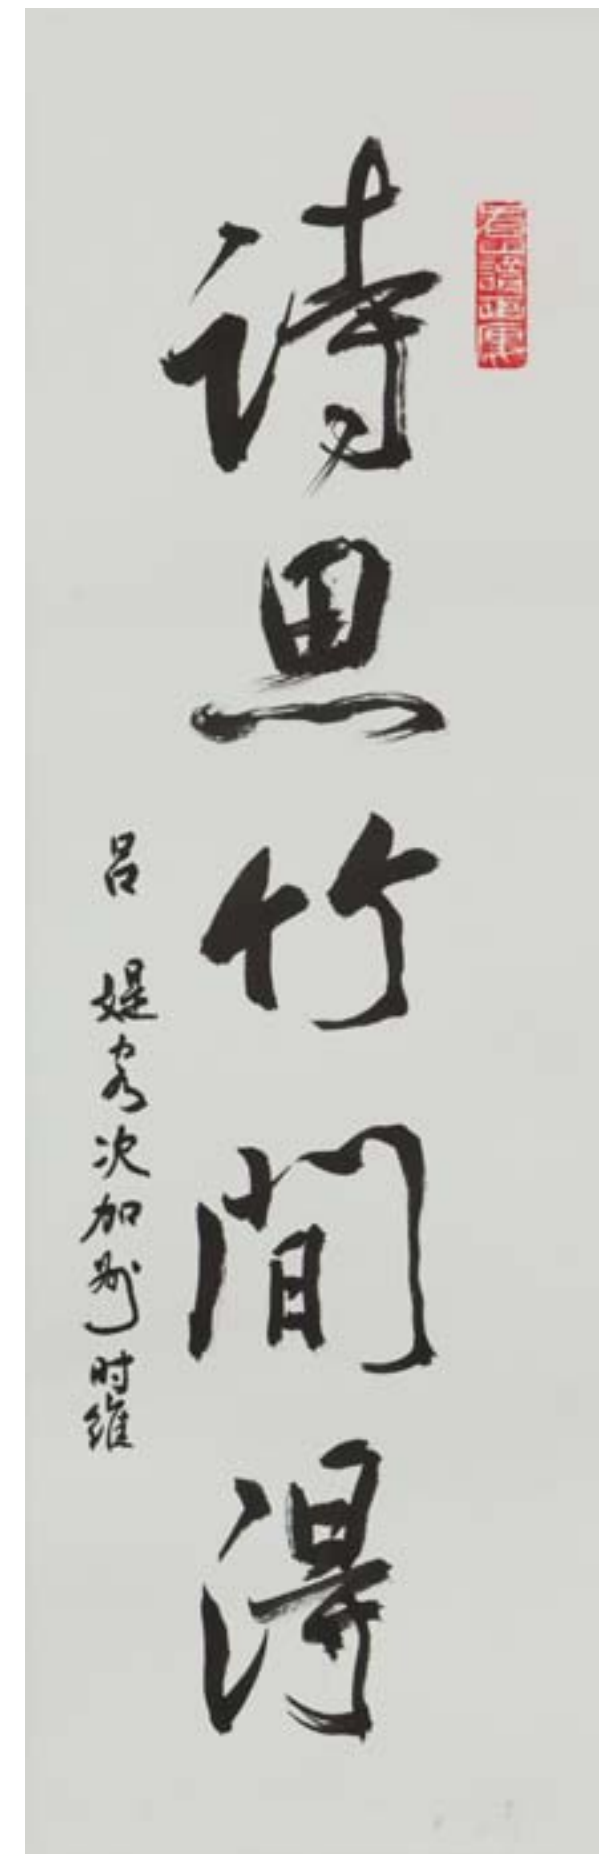 诗思竹间得
吕 媞客次加州时维